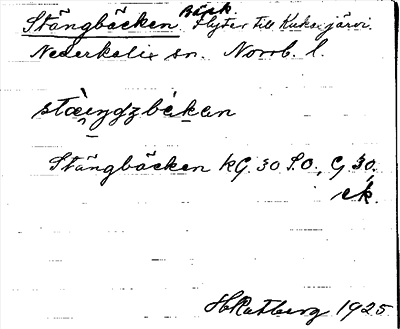 Stångbäcken Bäck. Flyter till Kuksjärvi.
Nederkalix sn. Norrb. l.
stæŋgzbækan
Stångbäcken KG. 30 S.O., G 30.
ek.
H Ratberg 1925